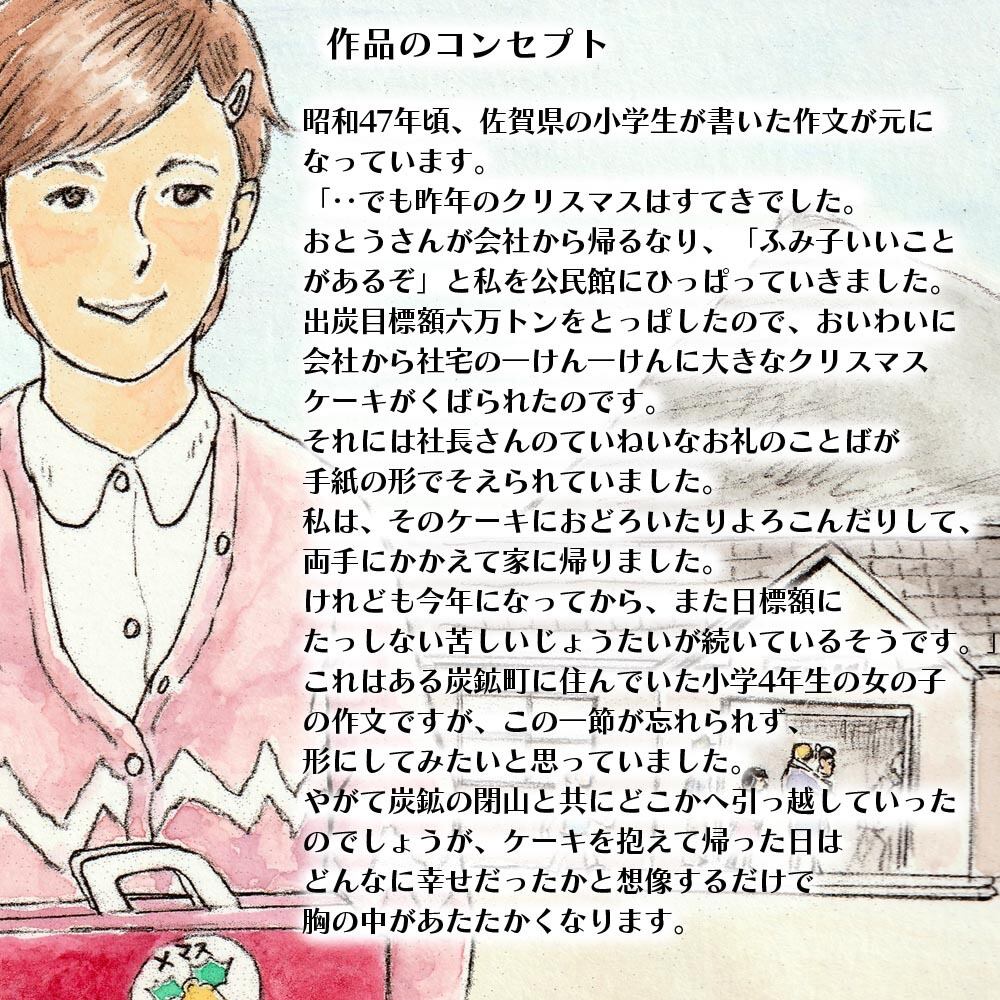 作品のコンセプト
昭和47年頃、佐賀県の小学生が書いた作文が元に
なっています。
「‥でも昨年のクリスマスはすてきでした。
おとうさんが会社から帰るなり、「ふみ子いいこと
があるぞ」と私を公民館にひっぱっていきました。
出炭目標額六万トンをとっぱしたので、おいわいに
会社から社宅の一けん一けんに大きなクリスマス
ケーキがくばられたのです。
それには社長さんのていねいなお礼のことばが
手紙の形でそえられていました。
私は、そのケーキにおどろいたりよろこんだりして、
両手にかかえて家に帰りました。
けれども今年になってから、また目標額に
たっしない苦しいじょうたいが続いているそうです。」
これはある炭鉱町に住んでいた小学4年生の女の子
の作文ですが、この一節が忘れられず、
形にしてみたいと思っていました。
やがて炭鉱の閉山と共にどこかへ引っ越していった
のでしょうが、ケーキを抱えて帰った日は
どんなに幸せだったかと想像するだけで
胸の中があたたかくなります。
メマス